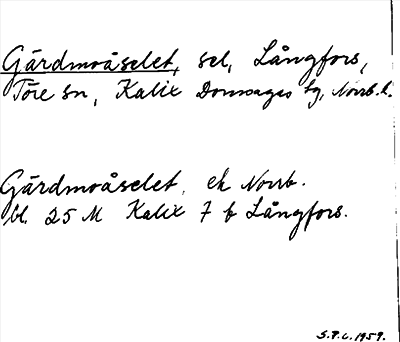 Gärdmoåselet, sel, Långfors,
Töre sn, Kalix Domsagas tg, Norrb. l.
Gärdmoåselet, ek Norrb.
bl. 25 M Kalix 7 b Långfors.
S.P.C. 1959.